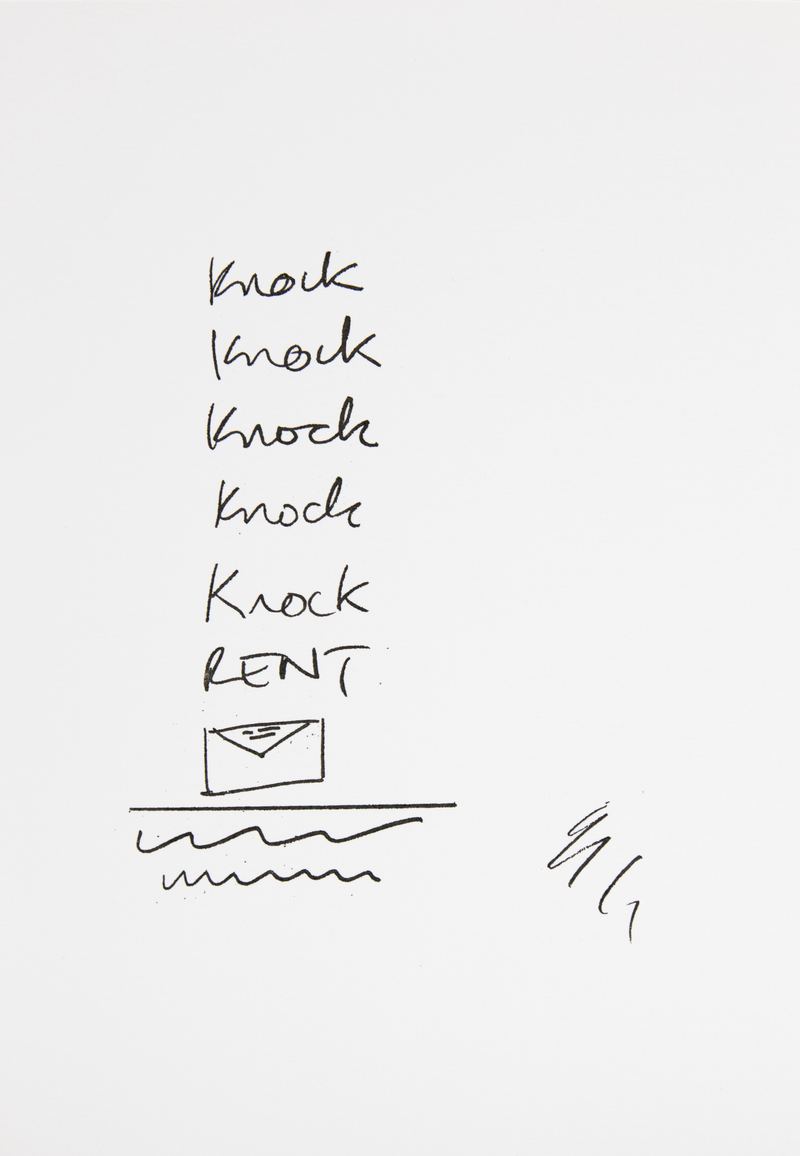 Knock
Knock
Knock
Knock
Knock
RENT